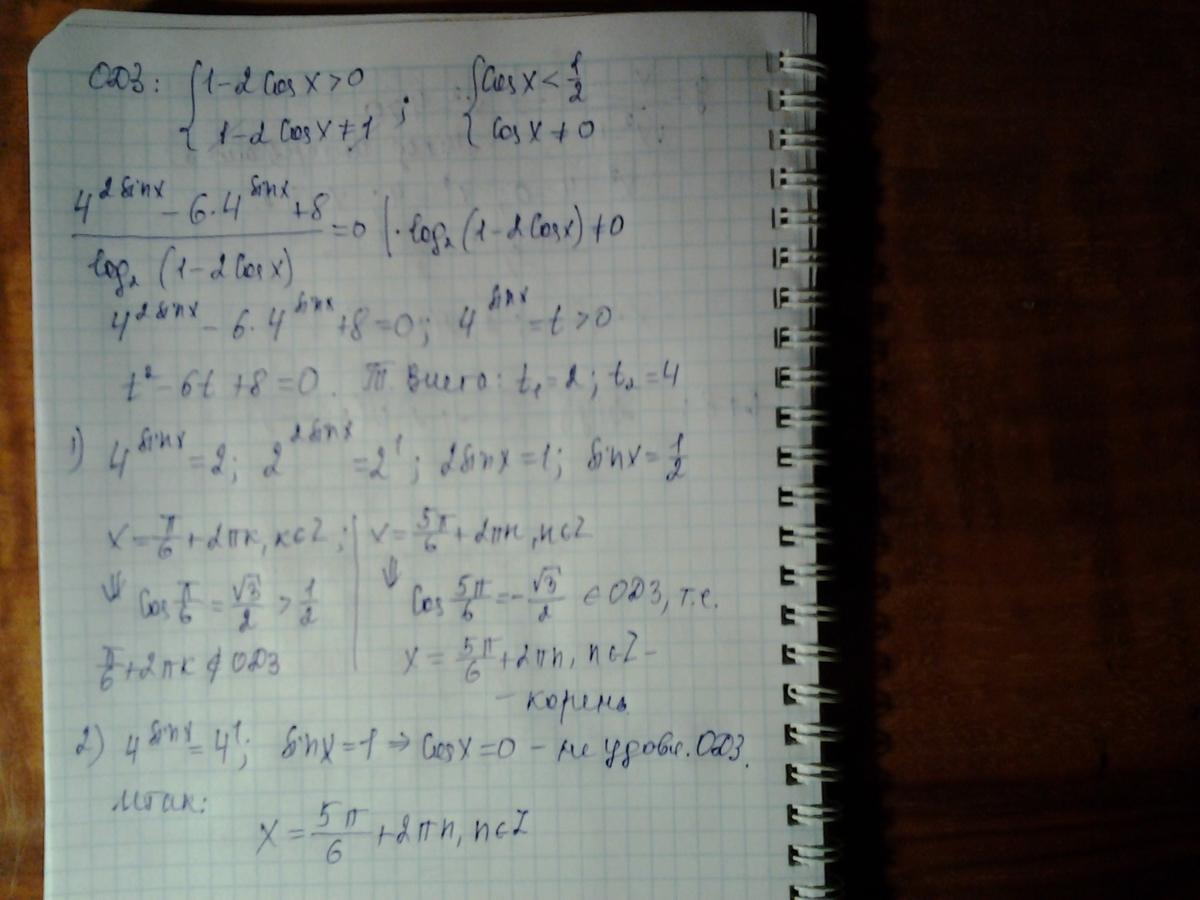 ОДЗ: { 1-2cosx>0 ; { cosx<1/2
{ 1-2cosx≠1 { cosx≠0
(4^(2sinx) - 6·4^(sinx) + 8) / log₂(1-2cosx) = 0 | · log₂(1-2cosx)≠0
4^(2sinx) - 6·4^(sinx) + 8 = 0; 4^(sinx) = t > 0
t² - 6t + 8 = 0. Т. Виета: t₁ = 2; t₂ = 4
1) 4^(sinx) = 2; 2^(2sinx) = 2¹; 2sinx = 1; sinx = 1/2
x = π/6 + 2πk, k∈Z; | x = 5π/6 + 2πn, n∈Z
⇓ cos π/6 = √3/2 > 1/2 | ⇓ cos 5π/6 = -√3/2 ∈ ОДЗ, т.е.
π/6 + 2πk ∉ ОДЗ | x = 5π/6 + 2πn, n∈Z -
- корень
2) 4^(sinx) = 4¹; sinx = 1 ⇒ cosx = 0 - не удовл. ОДЗ.
Итак:
x = 5π/6 + 2πn, n∈Z